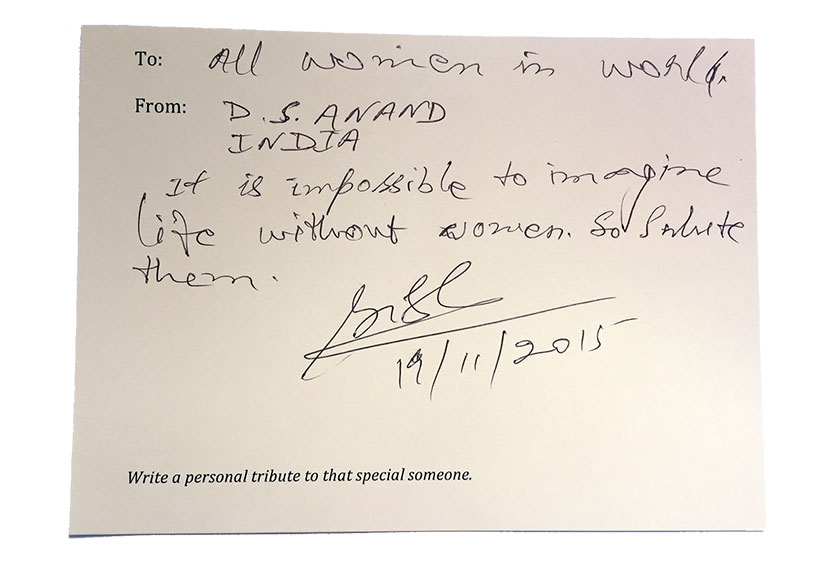 To: All women in world.
From: D.S. ANAND
INDIA
It is impossible to imagine
life without women. So Salute
them.
19/11/2015
Write a personal tribute to that special someone.